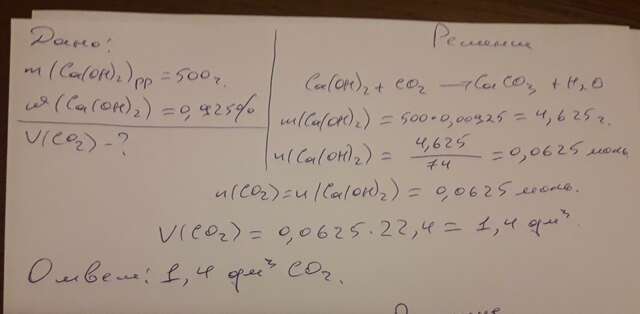 Дано:
m(Ca(OH)₂)рр = 500г.
ω(Ca(OH)₂) = 0,925%
V(CO₂) - ?
Решение
Ca(OH)₂ + CO₂ → CaCO₃ + H₂O
m(Ca(OH)₂) = 500·0,00925 = 4,625 г.
n(Ca(OH)₂) = 4,625/74 = 0,0625 моль
n(CO₂) = n(Ca(OH)₂) = 0,0625 моль.
V(CO₂) = 0,0625·22,4 = 1,4 дм³.
Ответ: 1,4 дм³ CO₂.